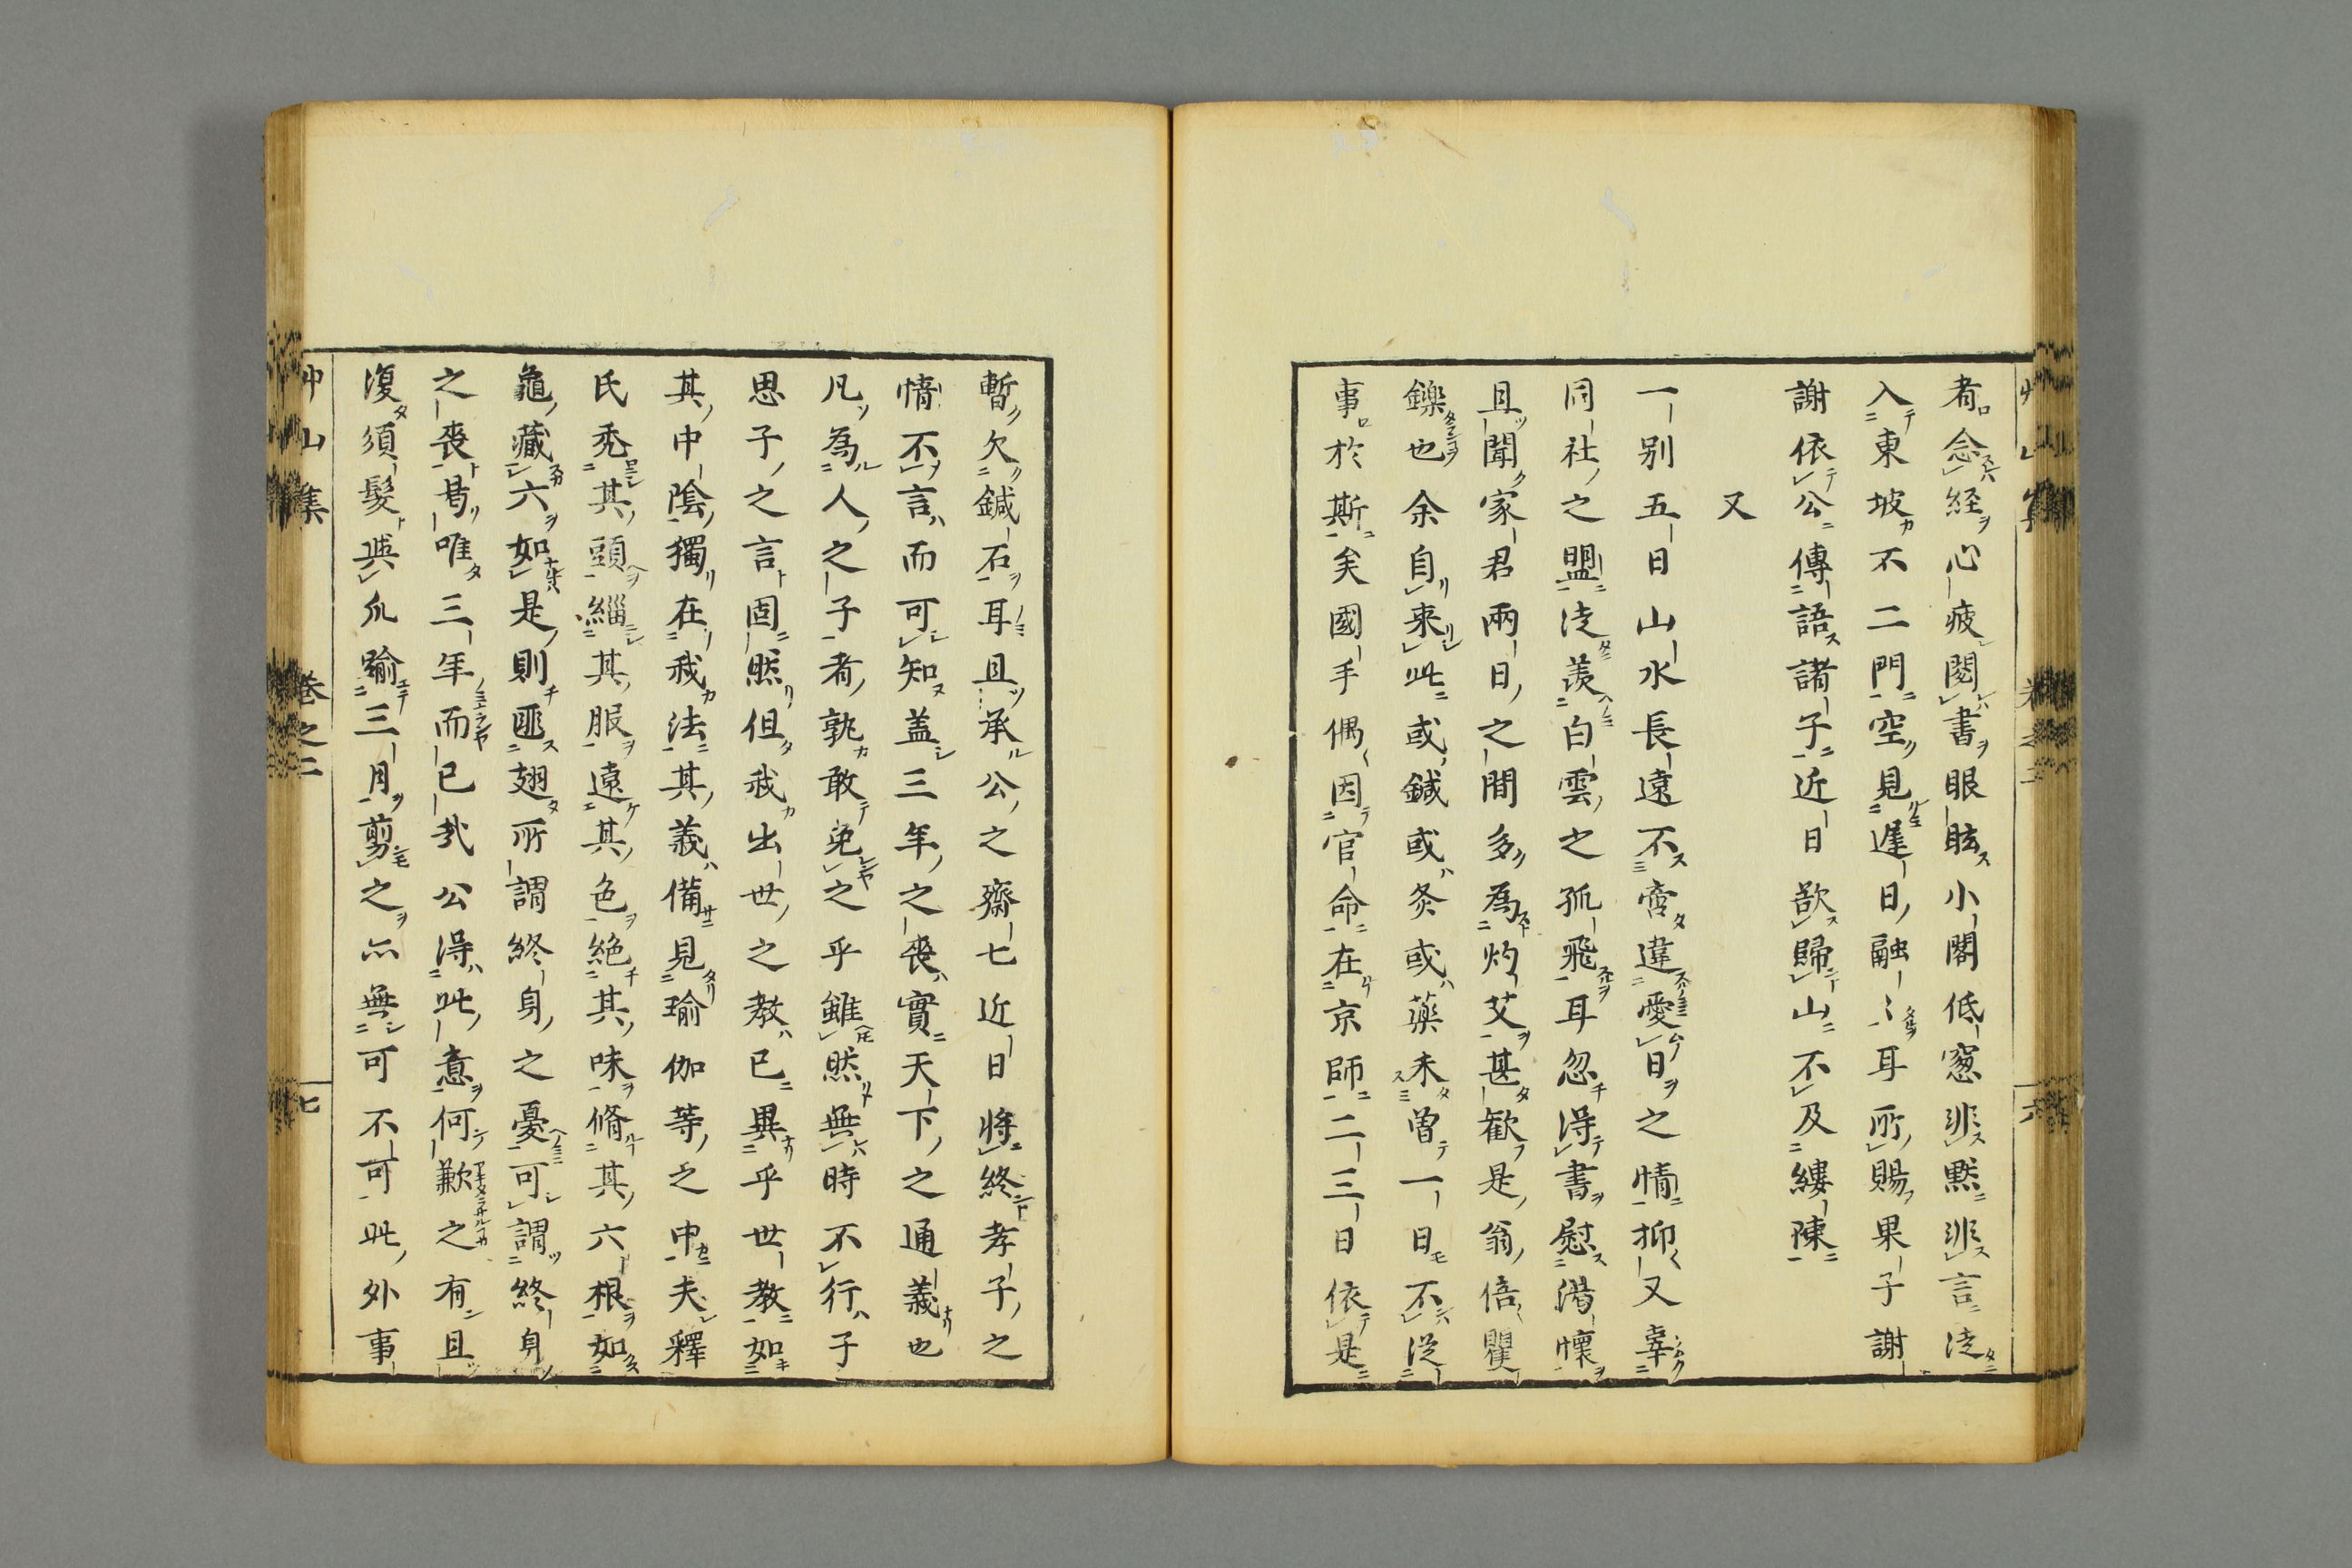 者念経心疲閲書眼眩小閣低窓非黙非言徒
入東坡不二門空見遅日融〻耳所賜果子謝
謝依公傳語諸子近日欲歸山不及縷陳
又
一別五日山水長遠不啻違愛日之情抑又辜
同社之盟徒羨白雲之孤飛耳忽得書慰潜懐
且聞家君両日之間多為灼艾甚歓是翁倍矍
鑠也余自来此或鍼或灸或藥未曽一日不從
事於斯矣國手偶因官命在京師二三日依是
暫欠鍼石耳且承公之齋七近日将終孝子之
情不言而可知盖三年之喪實天下之通義也
凡為人之子者孰敢免之乎雖然無時不行子
思子之言固然但我出世之教已異乎世教如
其中陰獨在我法其義備見瑜伽等之中夫釋
氏禿其頭緇其服遠其色絶其味脩其六根如
龜藏六如是則匪翅所謂終身之憂可謂終身
之喪曷唯三年而已哉公得此意何歉之有且
復須髮與爪踰三月剪之亦無可不可此外事
艸山集 卷之二 七